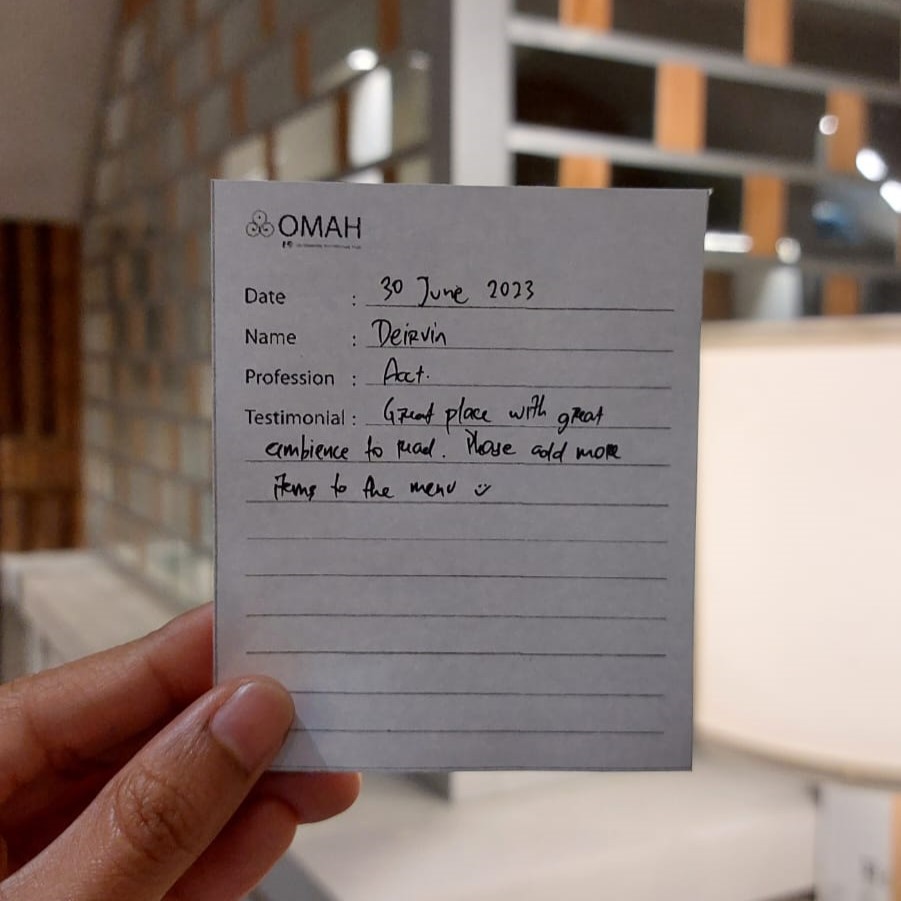 OMAH
Date : 30 June 2023
Name : Deirvin
Profession : Acct.
Testimonial : Great place with great
ambience to read. Please add more
items to the menu